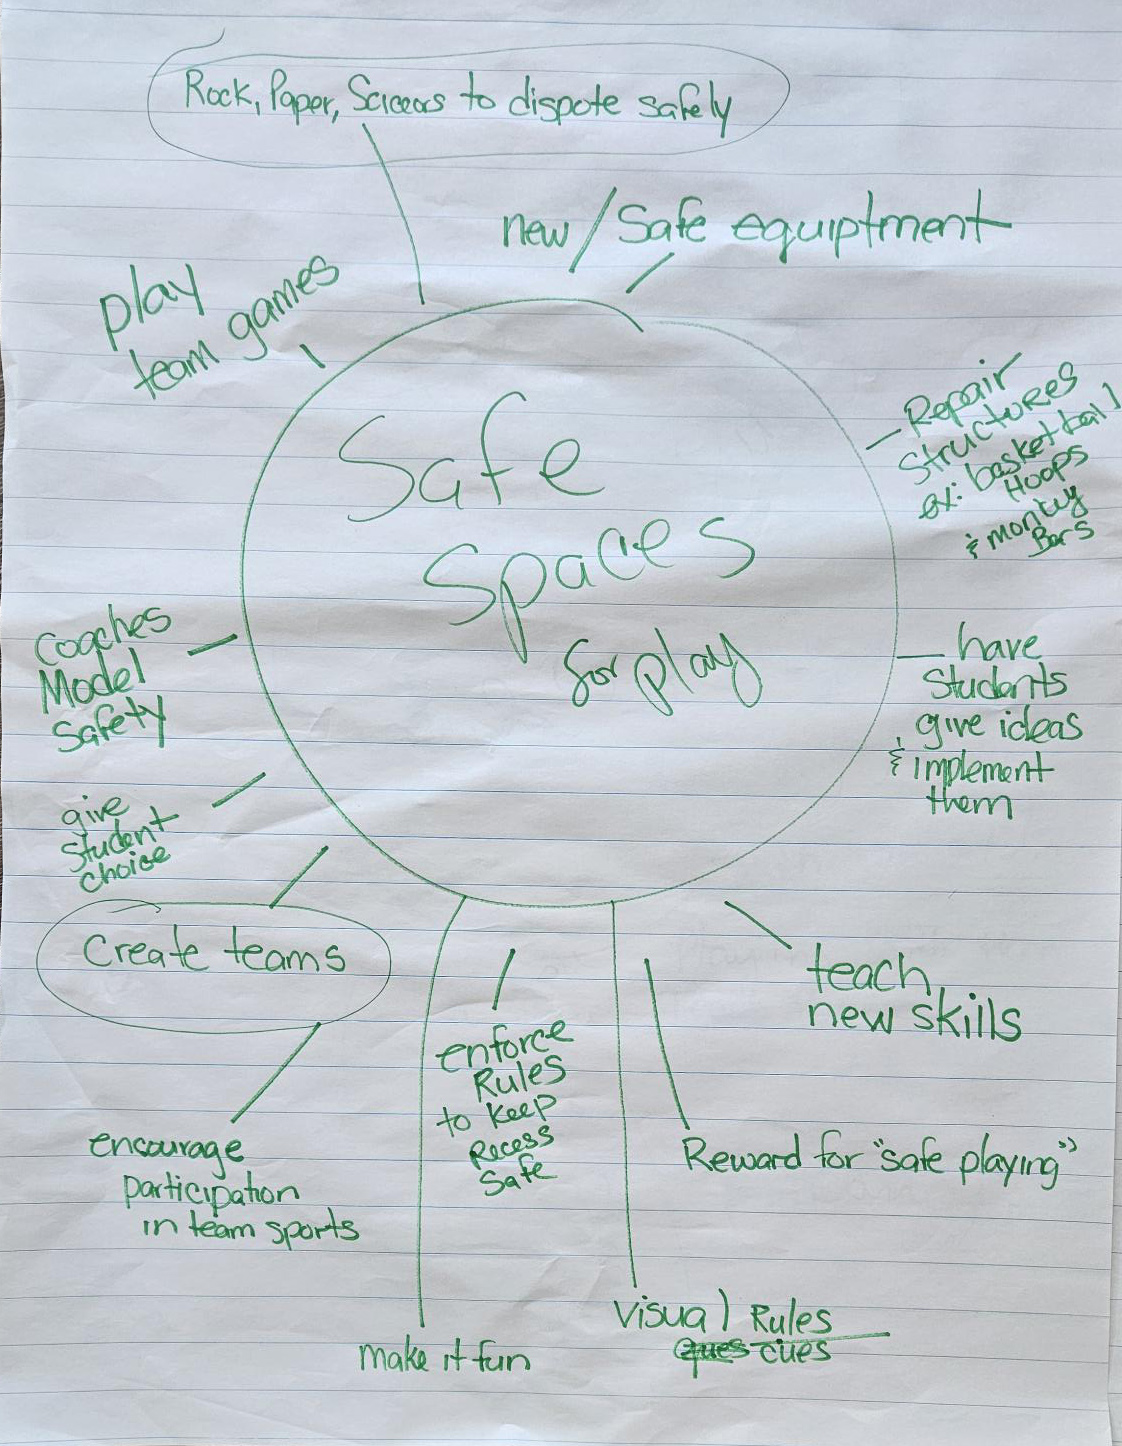 Rock, Paper, Scissors to dispote safely
new/Safe equiptment
play
team games
Repair
Structures
ex: basketball
Hoops
& monkey
Bars
Safe
Spaces
for play
Coaches
Model
Safety
have
Students
give ideas
& implement
them
give
student
choice
Create teams
teach
new skills
enforce
Rules
to keep
Recess
Safe
encourage
participation
in team sports
Reward for "safe playing"
Visual Rules
cues
make it fun